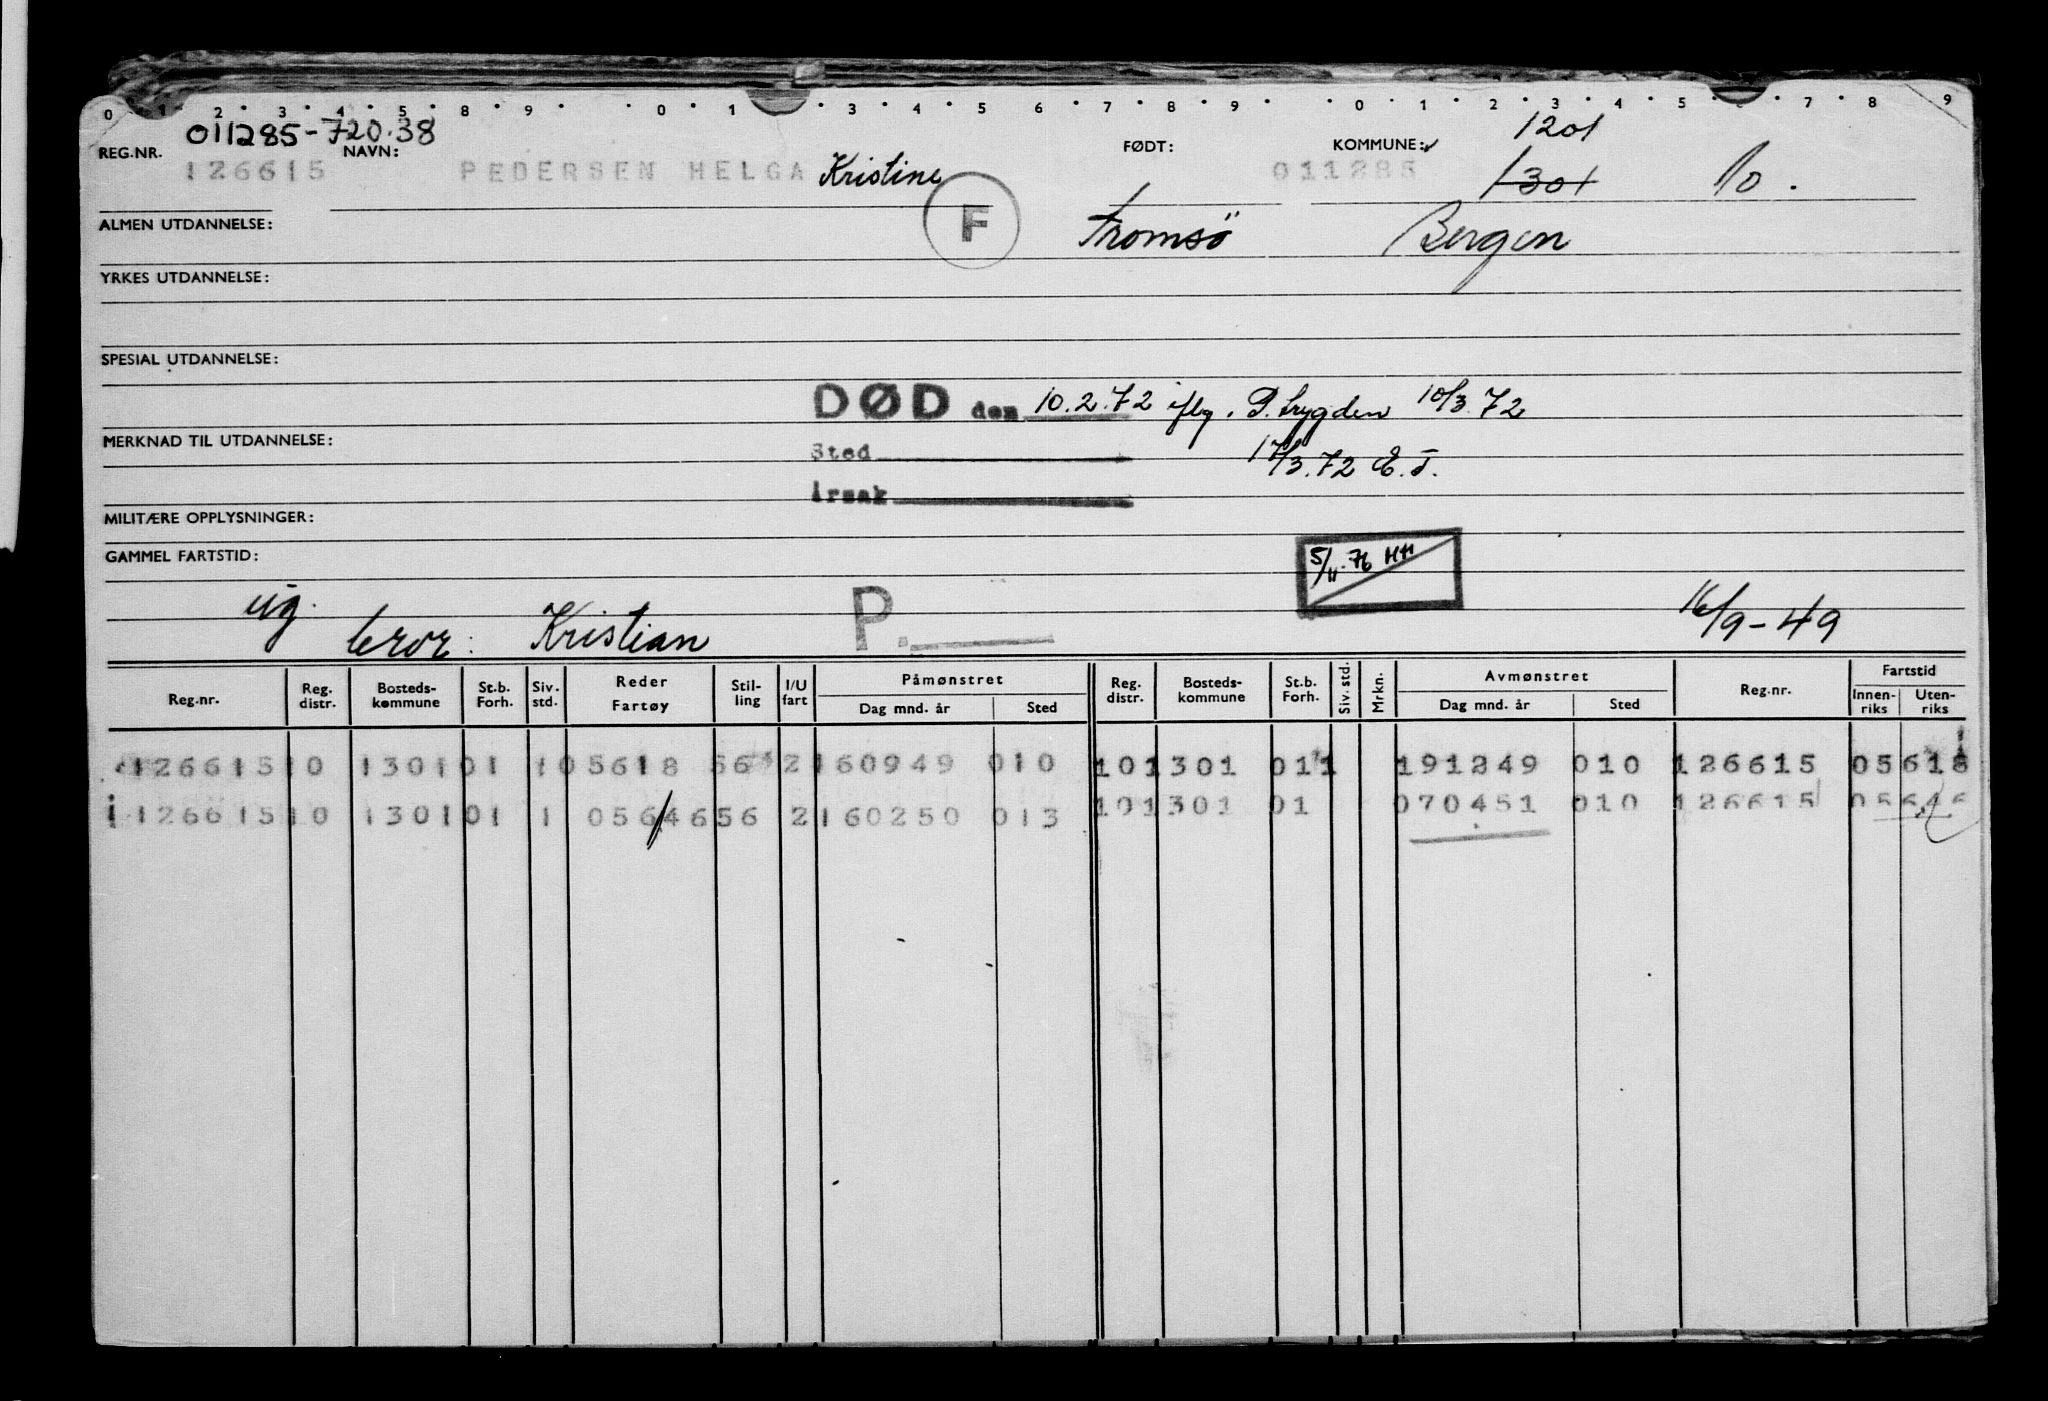 0 1 2 3 4 5 8 9 0 1 3 4 5 6 7 8 9 0 1 2 3 4 5 6 7 8 9
011285-720.38
1201
REG.NR. NAVN: FØDT: KOMMUNE:
126615 PEDERSEN HELGA Kristine 011285 1301 10.
ALMEN UTDANNELSE: F Tromsö Bergen
YRKES UTDANNELSE:
SPESIAL UTDANNELSE:
DØD den 10.2.72 iflg. P.trygden 10/3.72
MERKNAD TIL UTDANNELSE:
Sted 17/3.72 E.T.
Årsak
MILITÆRE OPPLYSNINGER:
GAMMEL FARTSTID:
5/11.76 HH
ug. P. 16/9-49
bror: Kristian
Reg.nr. Reg. distr. Bosteds-kommune St.b. Forh. Siv. std. Reder Fartøy Stil-ling I/U fart Påmønstret Dag mnd. år Sted Reg. distr. Bosteds-kommune St.b. Forh. Siv. std. Mrkn. Avmønstret Dag mnd. år Sted Reg.nr. Fartstid Innen-riks Uten-riks
126615 10 1301 01 1 05618 56 2 160949 010 10 1301 01 1 191249 010 126615 05618
126615 10 1301 01 1 05646 56 2 160250 013 10 1301 01 070451 010 126615 05646